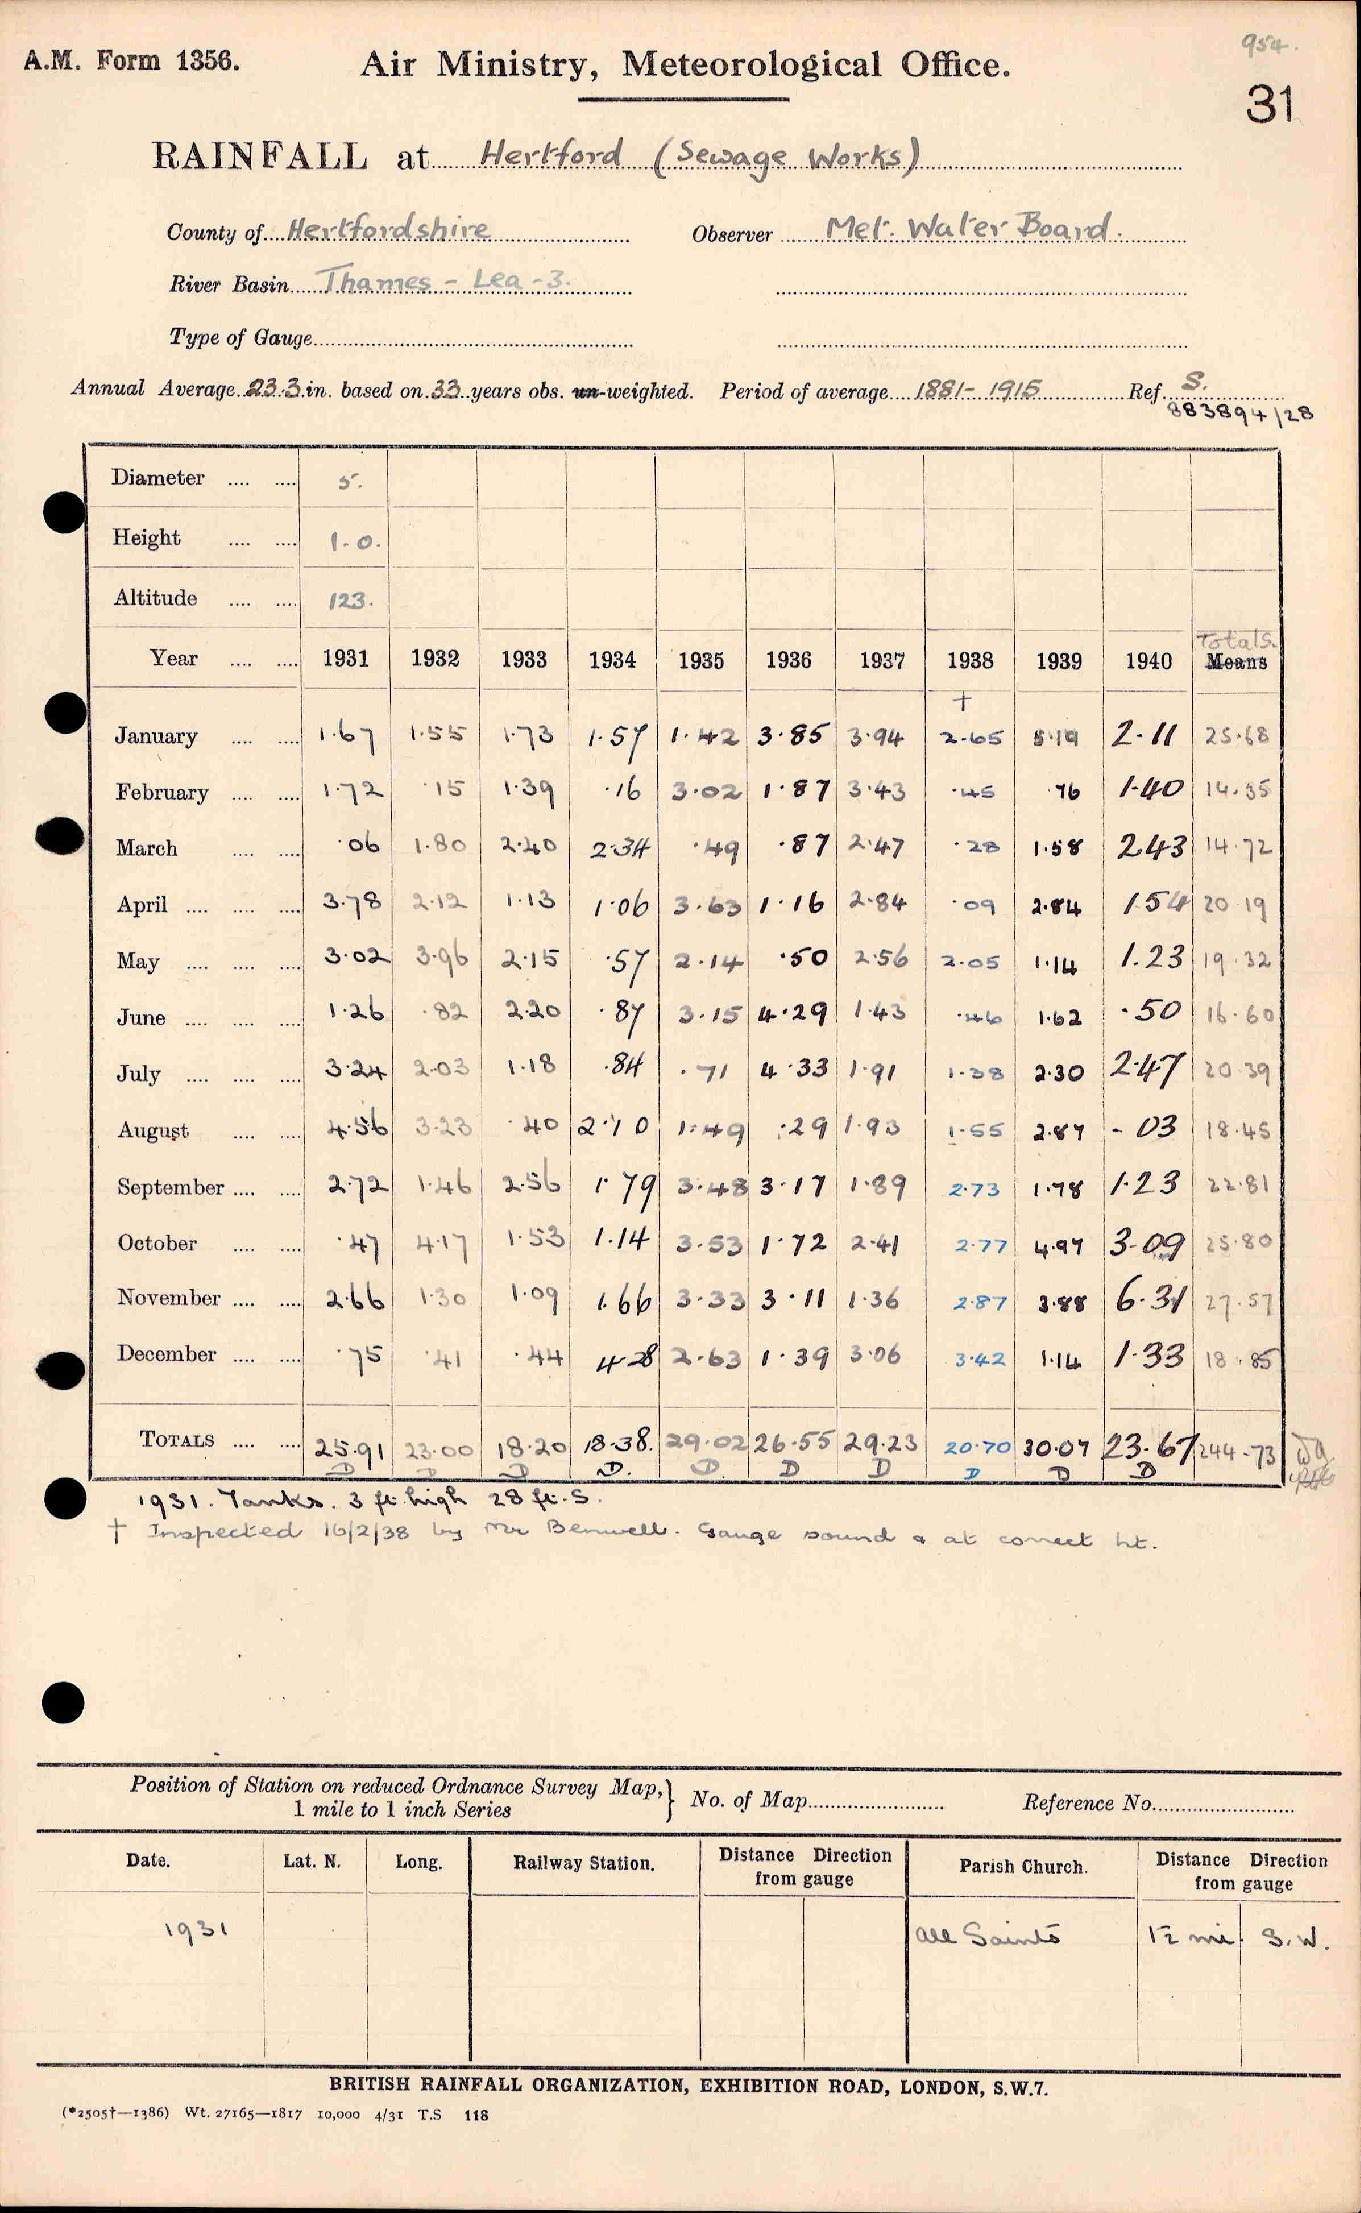 954.
A.M. Form 1356. Air Ministry, Meteorological Office.
31
RAINFALL at Hertford (Sewage Works)
County of Hertfordshire Observer Met. Water Board.
River Basin Thames - Lea - 3.
Type of Gauge
Annual Average 23.3 in. based on 33 years obs. un-weighted. Period of average 1881-1915 Ref. S.
883894/28
Diameter 5.
Height 1-0.
Altitude 123.
Totals
Year 1931 1932 1933 1934 1935 1936 1937 1938 1939 1940 Means
†
January 1.67 1.55 1.73 1.57 1.42 3.85 3.94 2.65 5.19 2.11 25.68
February 1.72 .15 1.39 .16 3.02 1.87 3.43 .45 .76 1.40 14.35
March .06 1.80 2.40 2.34 .49 .87 2.47 .28 1.58 2.43 14.72
April 3.78 2.12 1.13 1.06 3.63 1.16 2.84 .09 2.84 1.54 20.19
May 3.02 3.96 2.15 .57 2.14 .50 2.56 2.05 1.14 1.23 19.32
June 1.26 .82 2.20 .87 3.15 4.29 1.43 .46 1.62 .50 16.60
July 3.24 2.03 1.18 .84 .71 4.33 1.91 1.38 2.30 2.47 20.39
August 4.56 3.23 .40 2.10 1.49 .29 1.93 1.55 2.87 .03 18.45
September 2.72 1.46 2.56 1.79 3.48 3.17 1.89 2.73 1.78 1.23 22.81
October .47 4.17 1.53 1.14 3.53 1.72 2.41 2.77 4.97 3.09 25.80
November 2.66 1.30 1.09 1.66 3.33 3.11 1.36 2.87 3.88 6.31 27.57
December .75 .41 .44 4.28 2.63 1.39 3.06 3.42 1.14 1.33 18.85
TOTALS 25.91 23.00 18.20 18.38. 29.02 26.55 29.23 20.70 30.07 23.67 244.73
D D D D. D D D D D D
1931. Tanks. 3 ft. high 28 ft. S.
† Inspected 16/2/38 by Mr Benwell. Gauge sound & at correct ht.
Position of Station on reduced Ordnance Survey Map, } No. of Map Reference No.
1 mile to 1 inch Series
Date. Lat. N. Long. Railway Station. Distance Direction from gauge Parish Church. Distance Direction from gauge
1931 All Saints 1½ mi S.W.
BRITISH RAINFALL ORGANIZATION, EXHIBITION ROAD, LONDON, S.W.7.
(*2505†—1386) Wt. 27165—1817 10,000 4/31 T.S 118